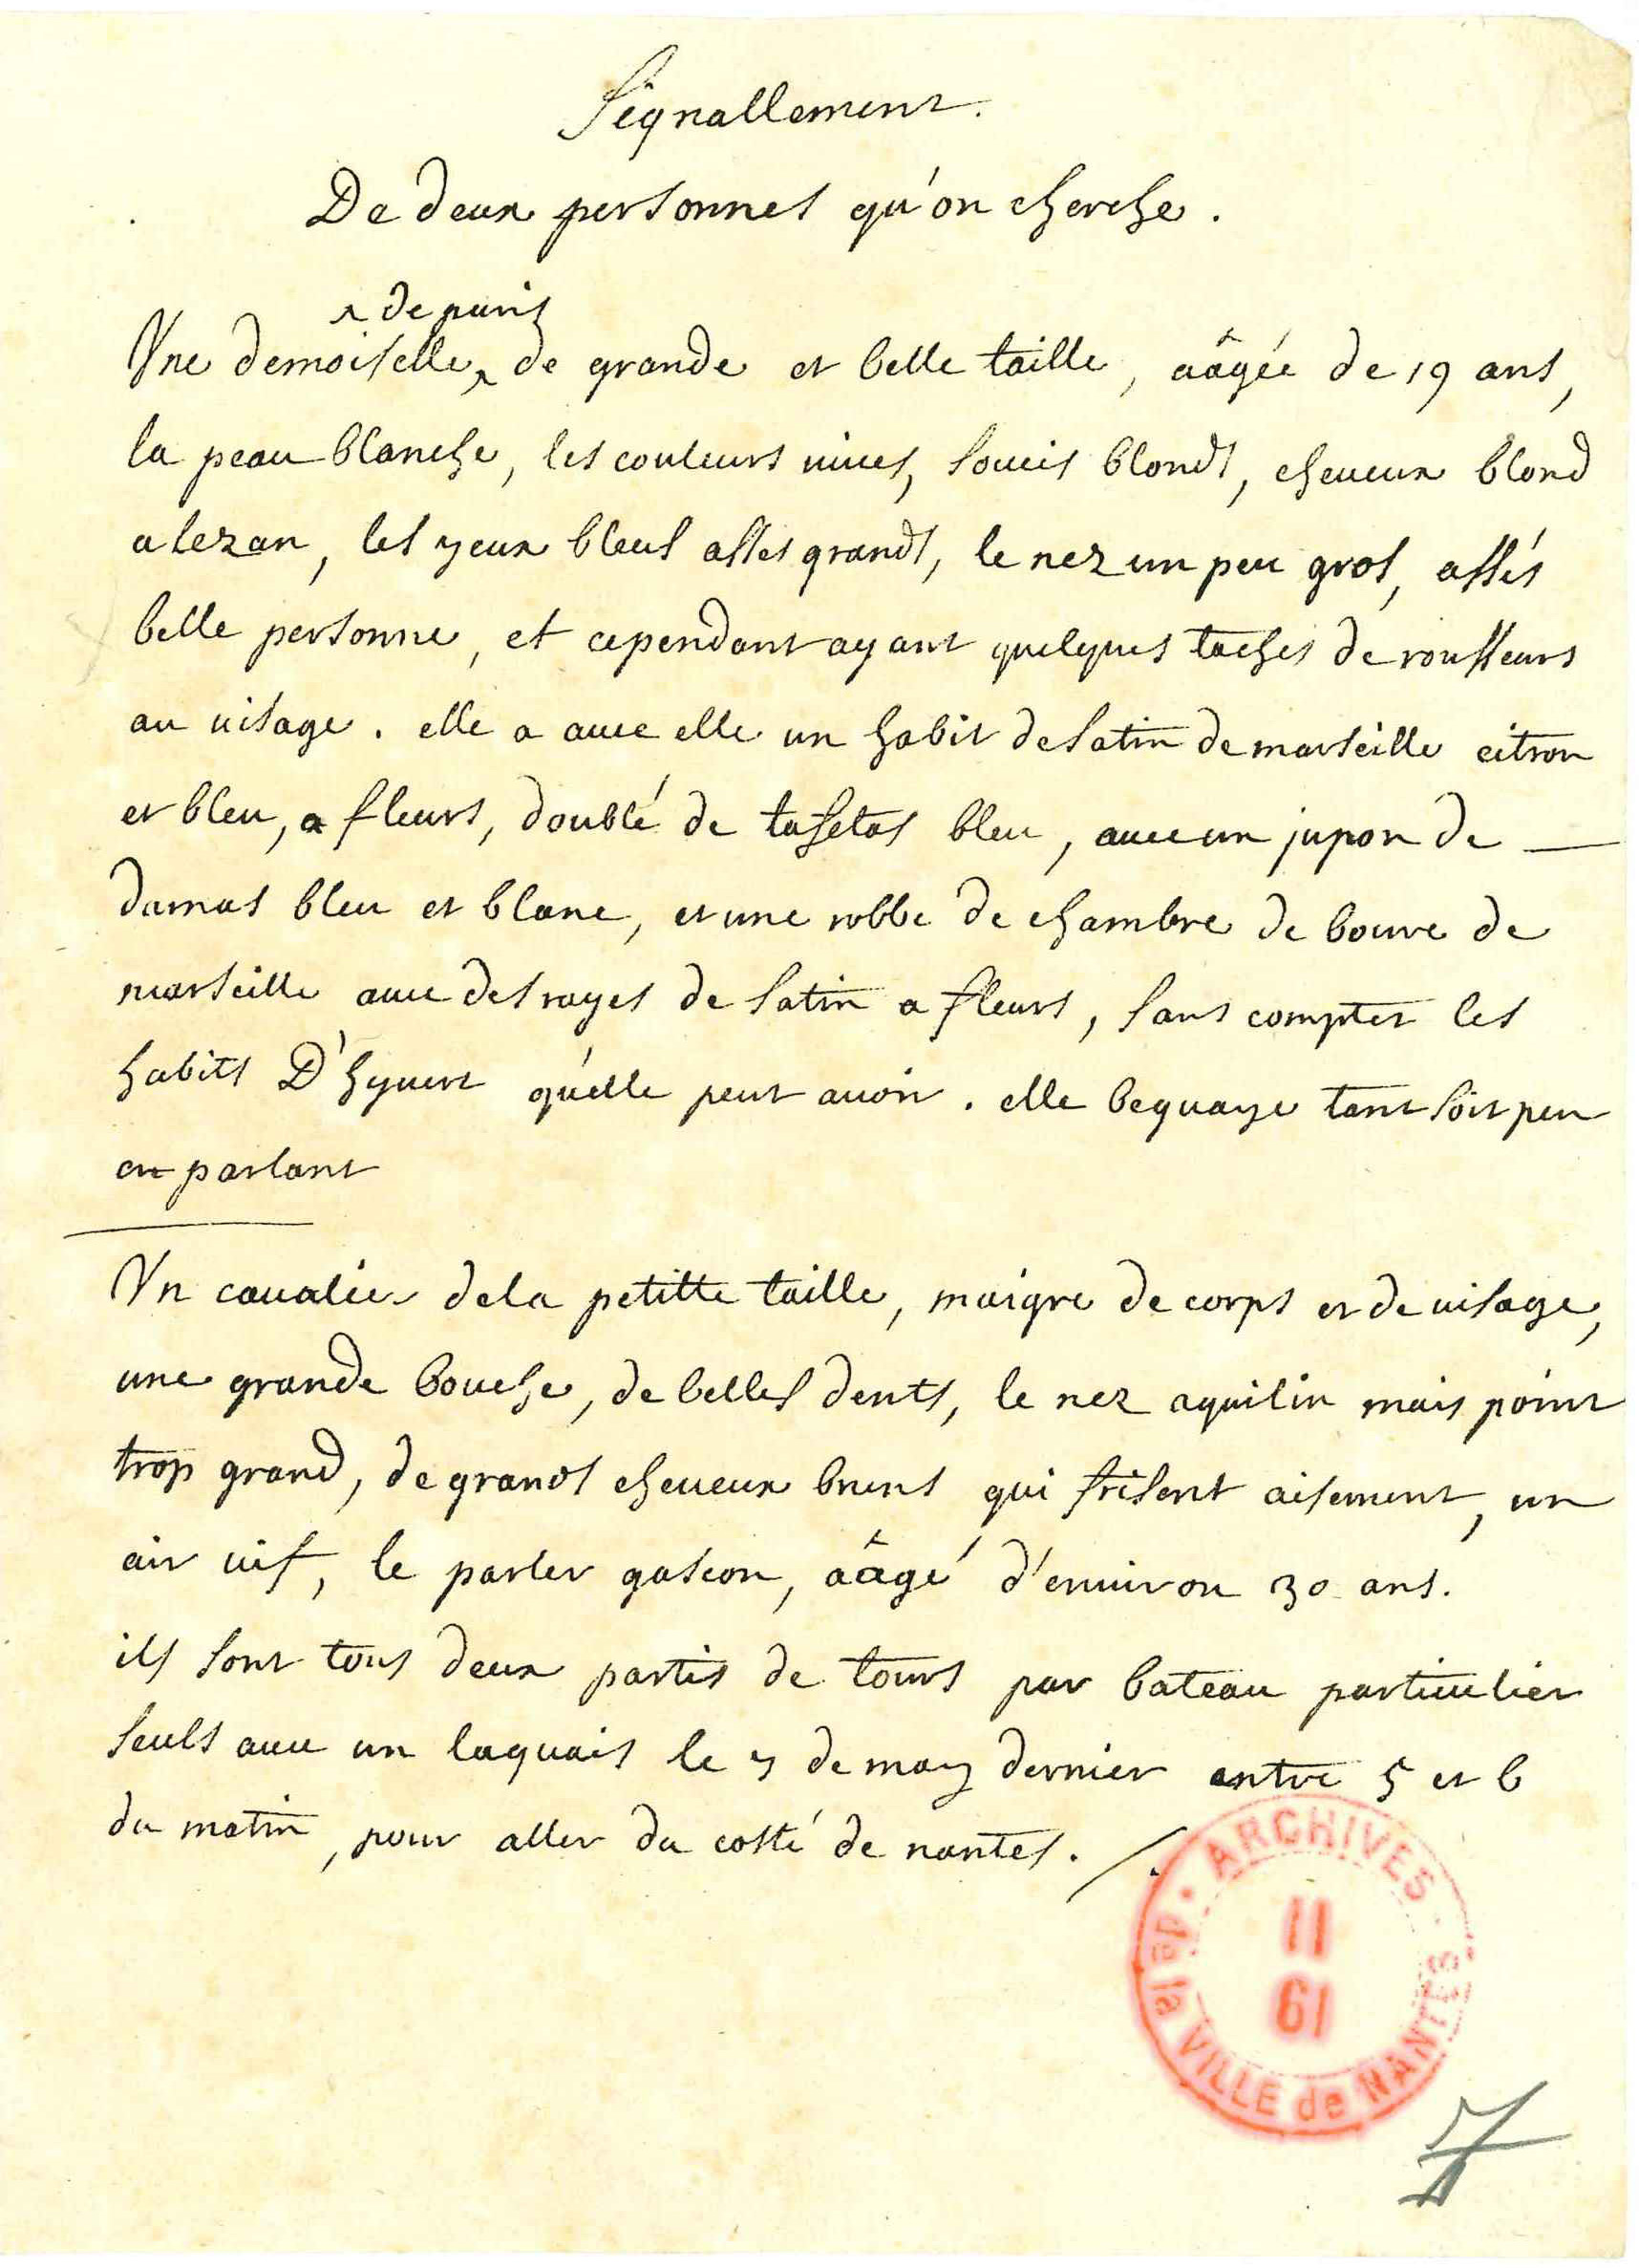 Signallement.
De deux personnes qu'on cherche.
^ de paris
Une demoiselle ^ de grande et belle taille, aâgée de 19 ans,
la peau blanche, les couleurs vives, soucis blonds, cheveux blond
alezan, les yeux bleus asses grands, le nez un peu gros, assés
belle personne, et cependant ayant quelques taches de rousseurs
au visage. elle a avec elle un habit de satin de marseille citron
et bleu, a fleurs, doublé de tafetas bleu, avec un jupon de —
damas bleu et blanc, et une robbe de chambre de boure de
marseille avec des rayes de satin a fleurs, sans compter les
habits D'hyvert qu'elle peut avoir. elle beguaye tant soit peu
en parlant
Un cavalier de la petitte taille, maigre de corps et de visage,
une grande bouche, de belles dents, le nez aquilin mais point
trop grand, de grands cheveux bruns qui frisent aisement, un
air vif, le parler gascon, aâgé d'environ 30 ans.
ils sont tous deux partis de tours par bateau particulier
seuls avec un laquais le 7 de may dernier entre 5 et 6
du matin, pour aller du costé de nantes. /.
ARCHIVES de la VILLE de NANTES
II
61